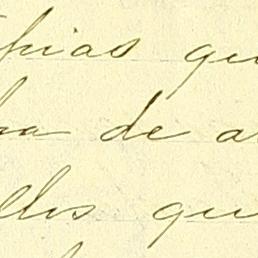 pias qu
ha de a
llos qu